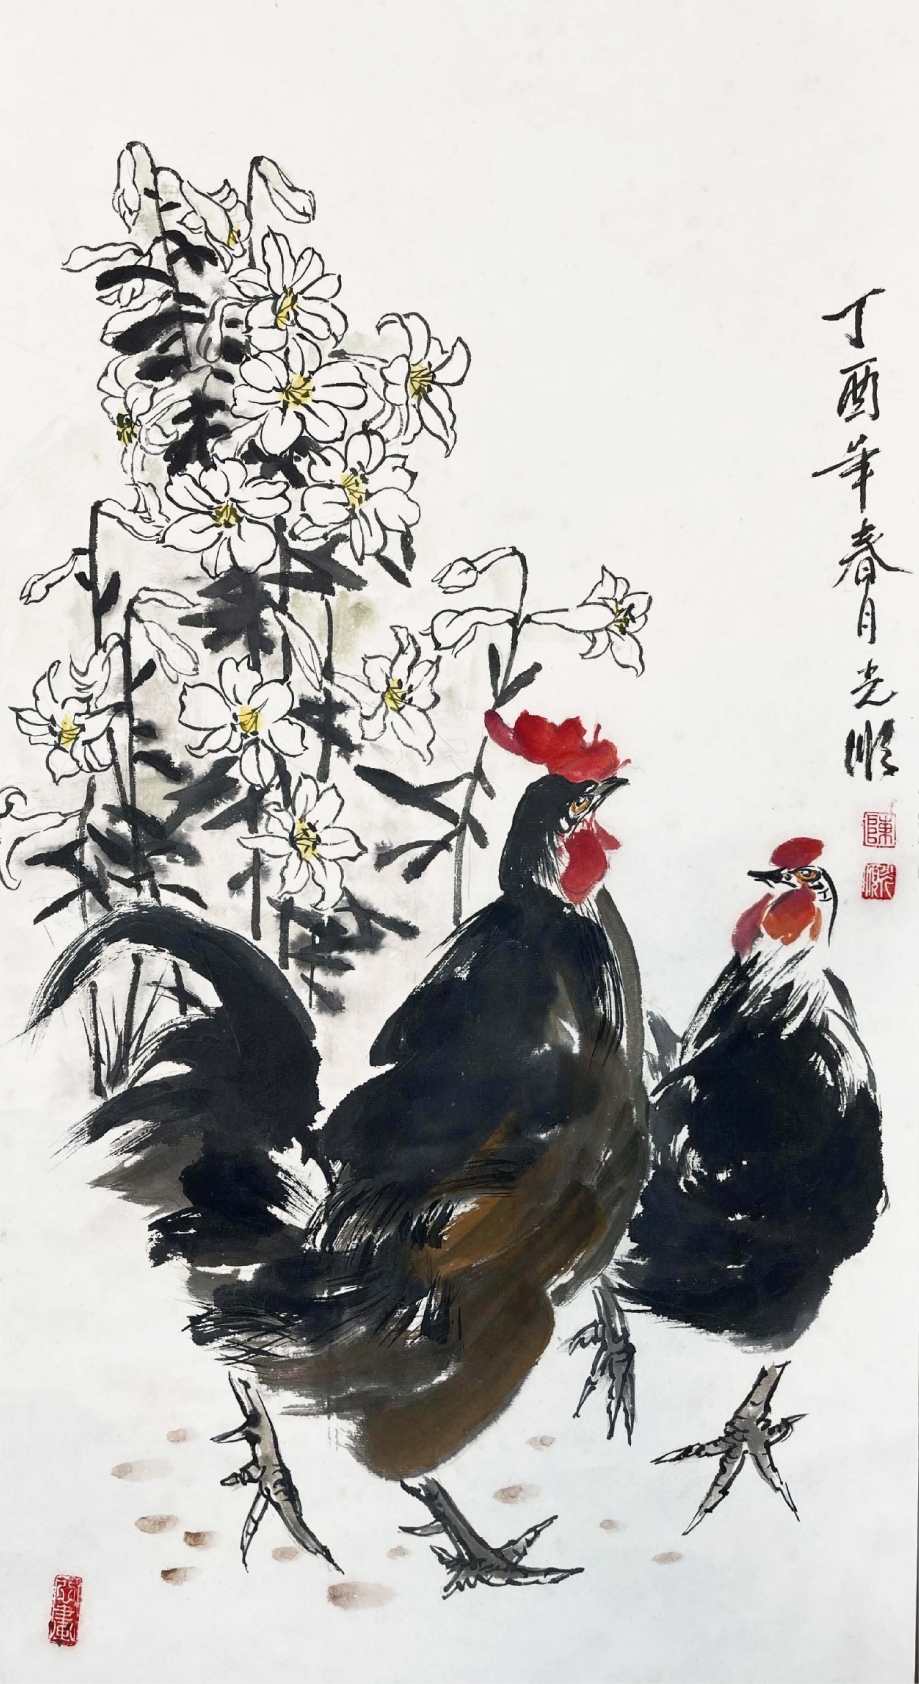 丁酉年春月光顺
陳